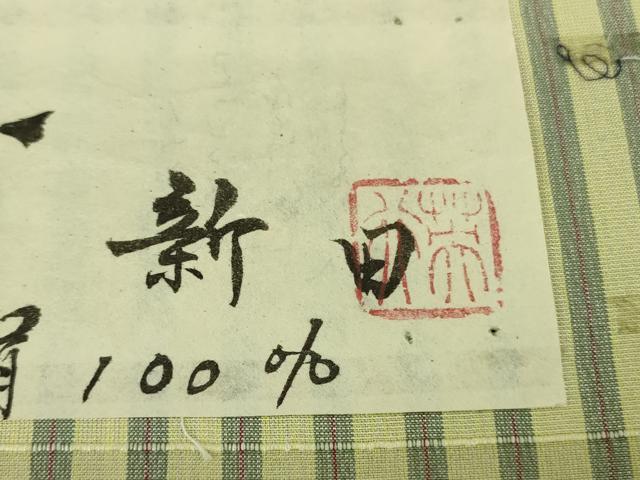 新日
100%